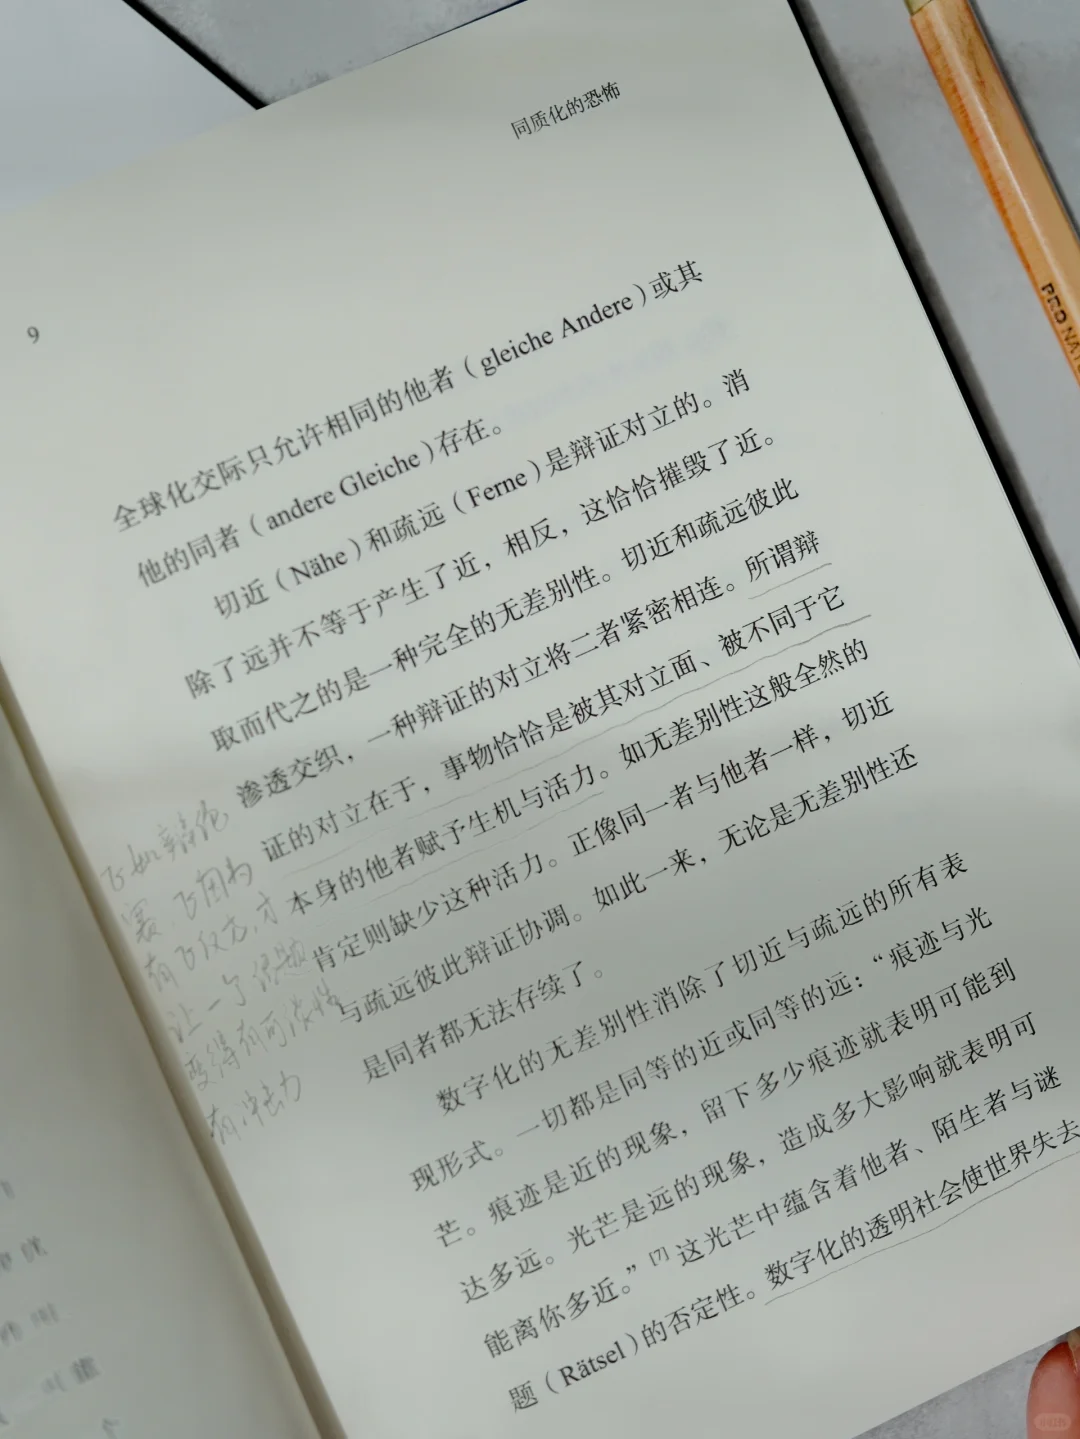 同质化的恐怖
9
全球化交际只允许相同的他者（gleiche Andere）或其
他的同者（andere Gleiche）存在。
切近（Nähe）和疏远（Ferne）是辩证对立的。消
除了远并不等于产生了近，相反，这恰恰摧毁了近。
取而代之的是一种完全的无差别性。切近和疏远彼此
渗透交织，一种辩证的对立将二者紧密相连。所谓辩
证的对立在于，事物恰恰是被其对立面、被不同于它
本身的他者赋予生机与活力。如无差别性这般全然的
肯定则缺少这种活力。正像同一者与他者一样，切近
与疏远彼此辩证协调。如此一来，无论是无差别性还
是同者都无法存续了。
数字化的无差别性消除了切近与疏远的所有表
现形式。一切都是同等的近或同等的远：“痕迹与光
芒。痕迹是近的现象，留下多少痕迹就表明可能到
达多远。光芒是远的现象，造成多大影响就表明可
能离你多近。”[7] 这光芒中蕴含着他者、陌生者与谜
题（Rätsel）的否定性。数字化的透明社会使世界失去
如辩论
赛
因为
有 反方，才
让一个
变得有可
有冲击力
PRO NAT